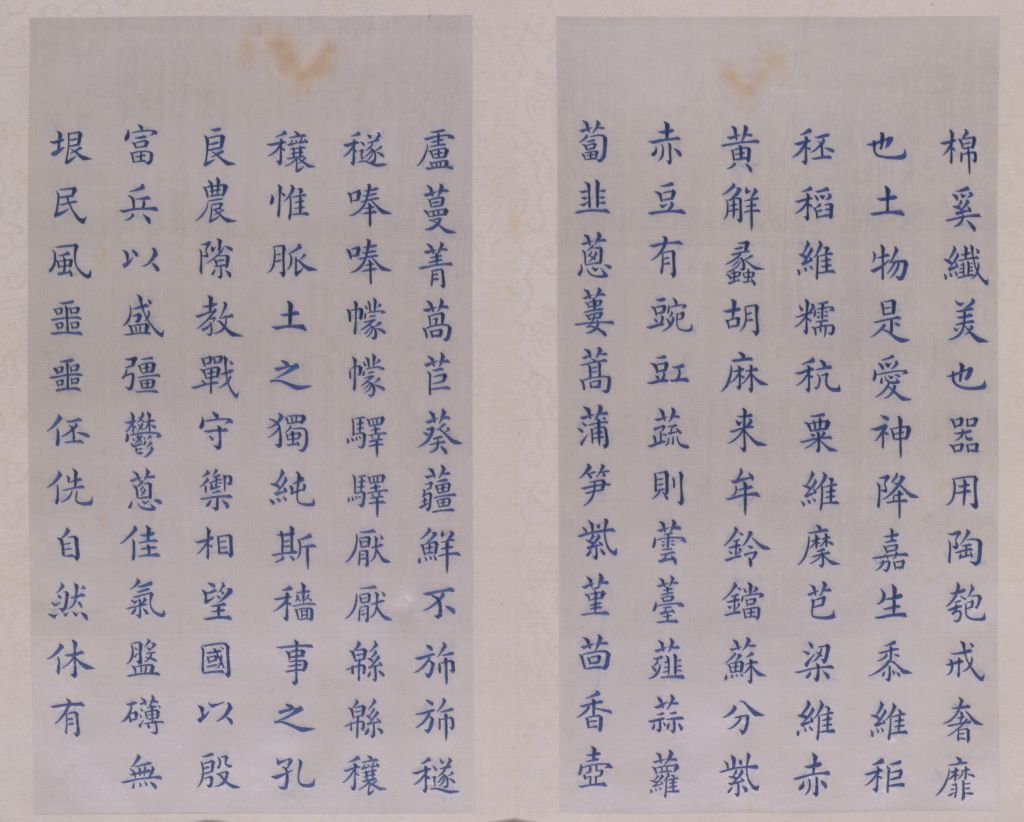 棉奚纖美也器用陶匏戒奢靡
也土物是愛神降嘉生黍維秬
秠稻維糯秔粟維穈芑粱維赤
黃解蠡胡麻来牟鈴鐺蘇分紫
赤豆有豌豇蔬則蕓薹薤蒜蘿
蔔韭蔥蔞蒿蒲笋紫堇茴香壺
盧蔓菁萵苣葵蘁鮮不斾斾穟
穟唪唪幪幪驛驛厭厭緜緜穰
穰惟脈土之獨純斯穡事之孔
良農隙教戰守禦相望國以殷
富兵以盛彊鬱蔥佳氣盤礴無
垠民風噩噩伾侁自然休有